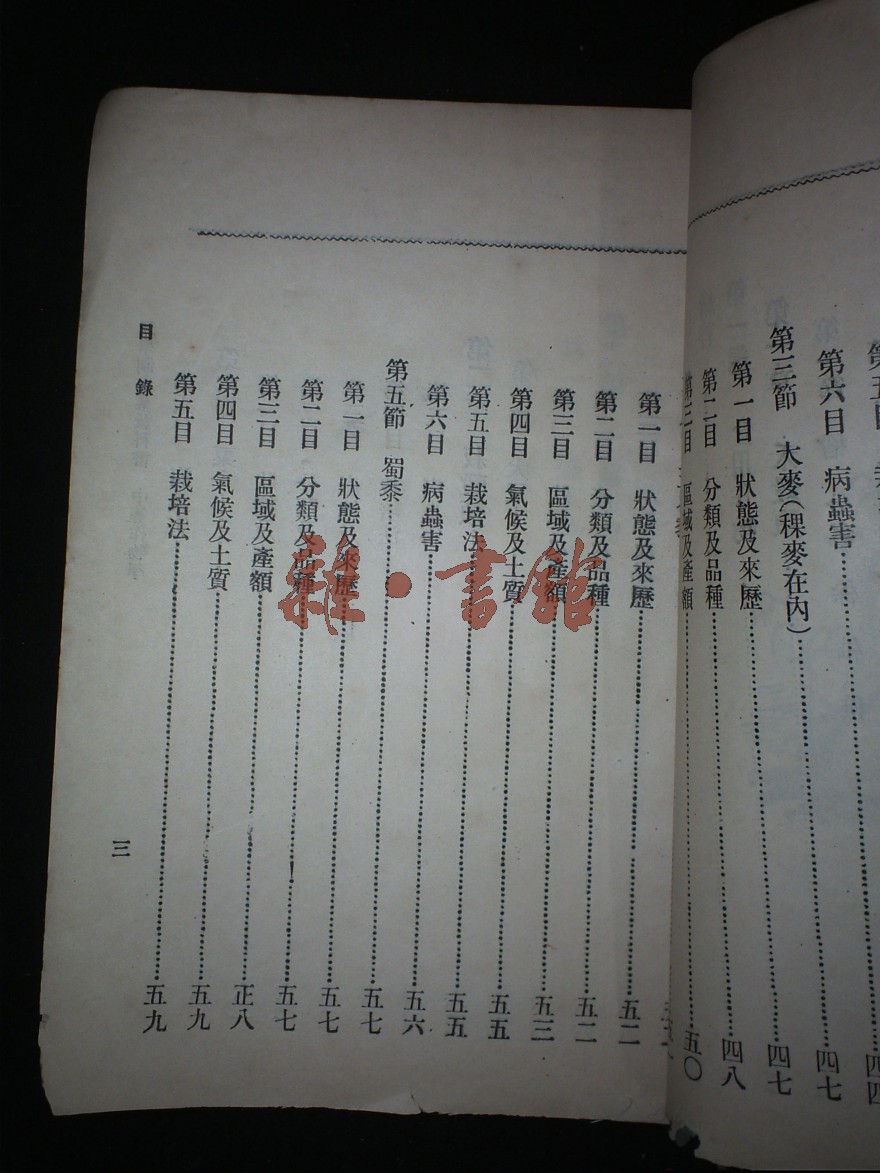 第六目 病蟲害 四七
第三節 大麥(稞麥在內) 四七
第一目 狀態及來歷 四八
第二目 分類及品種
第三目 區域及產額 五〇
第一目 狀態及來歷 五二
第二目 分類及品種 五二
第三目 區域及產額 五三
第四目 氣候及土質 五五
第五目 栽培法 五五
第六目 病蟲害 五六
第五節 蜀黍 五七
第一目 狀態及來歷 五七
第二目 分類及品種 五七
第三目 區域及產額 正八
第四目 氣候及土質 五九
第五目 栽培法 五九
目錄
三
雜·書館